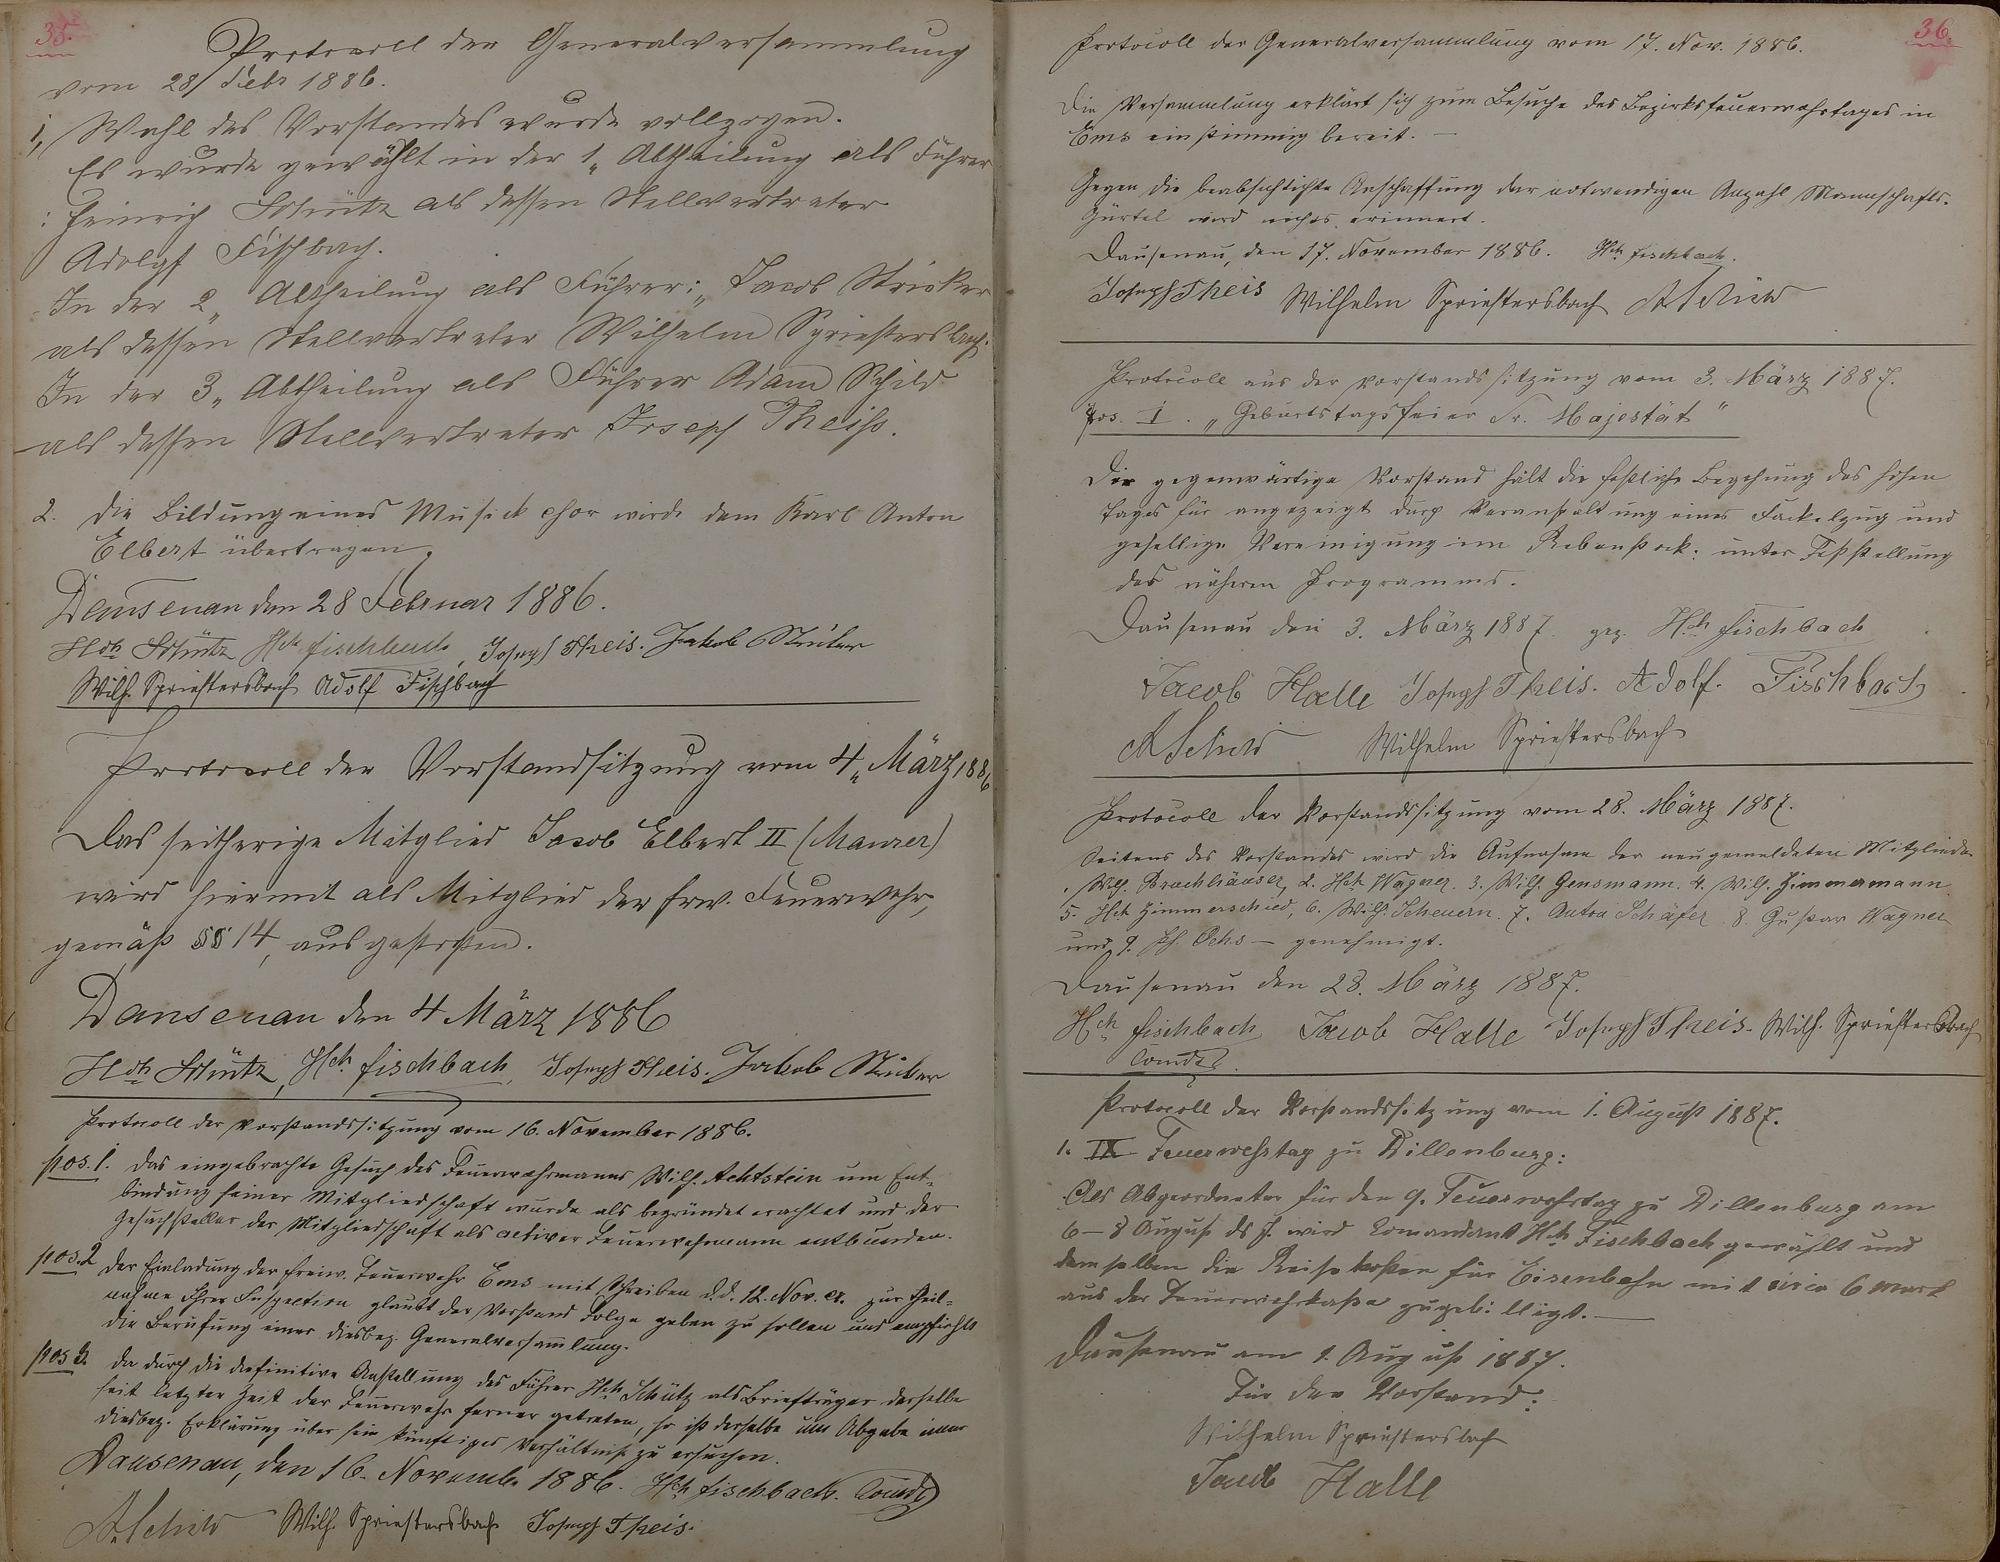 35.
Protocoll der Generalversammlung
vom 28/ Febr 1886.
1, Wahl des Vorstandes wurde vollzogen.
Es wurde gewählt in der 1„ Abtheilung als Führer
: Heinrich Schütz als dessen Stellvertreter
Adolpf Fischbach.
In der 2„ Abtheilung als Führer: Jacob Stricker
als dessen Stellvertreter Wilhelm Spriestersbach.
In der 3„ Abtheilung als Führer Adam Schild
als dessen Stellvertreter Joseph Theiss.
2. Die Bildung eines Musick chor wird dem Karl Anton
Elbert übertragen.
Dausenau den 28 Februar 1886.
Hch Schütz Hch Fischbach, Joseph Theis. Jakob
Wilh. Spriestersbach Adolf Fischbach
Protocoll der Vorstandsitzung vom 4„ März 1886
Das seitherige Mitglied Jacob Elbert II (Maurer)
wird hiermit als Mitglied der frw. Feuerwehr,
gemäß §§ 14, ausgestoßen.
Dausenau den 4 März 1886
Hch Schütz, Hch. Fischbach, Joseph Theis. Jakob
Protocoll der Vorstandssitzung vom 16. November 1886.
pos. 1. Das eingebrachte Gesuch des Feuerwehrmanns Wilh. Achtstein um Ent-
bindung seiner Mitgliedschaft wurde als begründet erachtet und der
Gesuchsteller der Mitgliedschaft als activer Feuerwehrmann entbunden.
pos. 2 Der Einladung der freiw. Feuerwehr Ems mit Schreiben d.d. 12. Nov. cr. zur Theil-
nahme Ihrer Inspection glaubt der Vorstand Folge geben zu sollen und empfiehlt
die Berufung einer diesbez. Generalversammlung.
pos 3. Da durch die definitive Anstellung des Führer Hch Schütz als Briefträger derselbe
seit letzter Zeit der Feuerwehr ferner getreten, so ist derselbe um Abgabe einer
diesbez. Erklärung über sein künftiges Verhältniß zu ersuchen.
Dausenau, den 16. November 1886. Hch Fischbach. Comdt
A. Schild Wilh. Spriestersbach Joseph Theis.
36.
Protocoll der Generalversammlung vom 17. Nov. 1886.
Die Versammlung erklärt sich zum Besuche des Bezirksfeuerwehrtages in
Ems einstimmig bereit. —
Gegen die beabsichtigte Anschaffung der notwendigen Anzahl Mannschafts-
Gürtel wird nichts erinnert.
Dausenau, den 17. November 1886. Hch Fischbach.
Joseph Theis Wilhelm Spriestersbach A Schild
Protocoll aus der Vorstandssitzung vom 3. März 1887.
Pos. I. „Geburtstagsfeier Sr. Majestät"
Der gegenwärtige Vorstand hält die festliche Begehung des hohen
Tages für angezeigt durch Veranstaltung eines Fackelzug und
gesellige Vereinigung im Rebenstock. unter Feststellung
des näheren Programms.
Dausenau den 3. März 1887. gez. Hch Fischbach
Jacob Halle Joseph Theis. Adolf. Fischbach
A Schild Wilhelm Spriestersbach
Protocoll der Vorstandssitzung vom 28. März 1887.
Seitens des Vorstandes wird die Aufnahme der neugemeldeten Mitglieder
1. Wilh. Bruchhäuser, 2. Hch Wagner. 3. Wilh. Gensmann. 4. Wilh. Zimmermann
5. Hch Zimmerschied, 6. Wilh. Scheuern. 7. Anton Schäfer 8. Gustav Wagner
und 9. Ph. Ochs — genehmigt.
Dausenau den 28. März 1887.
Hch Fischbach Jacob Halle Joseph Theis. Wilh. Spriestersbach
Comdt.
Protocoll der Vorstandssitzung vom 1. August 1887.
1. IX Feuerwehrtag zu Dillenburg:
Als Abgeordneter für den 9. Feuerwehrtag zu Dillenburg am
6–8 August ds J. wird Comandant Hch Fischbach gewählt und
demselben die Reisekosten für Eisenbahn mit circa 6 Mark
aus der Feuerwehrkasse zugebilligt. —
Dausenau am 1. August 1887.
Für den Vorstand:
Wilhelm Spriestersbach
Jacob Halle